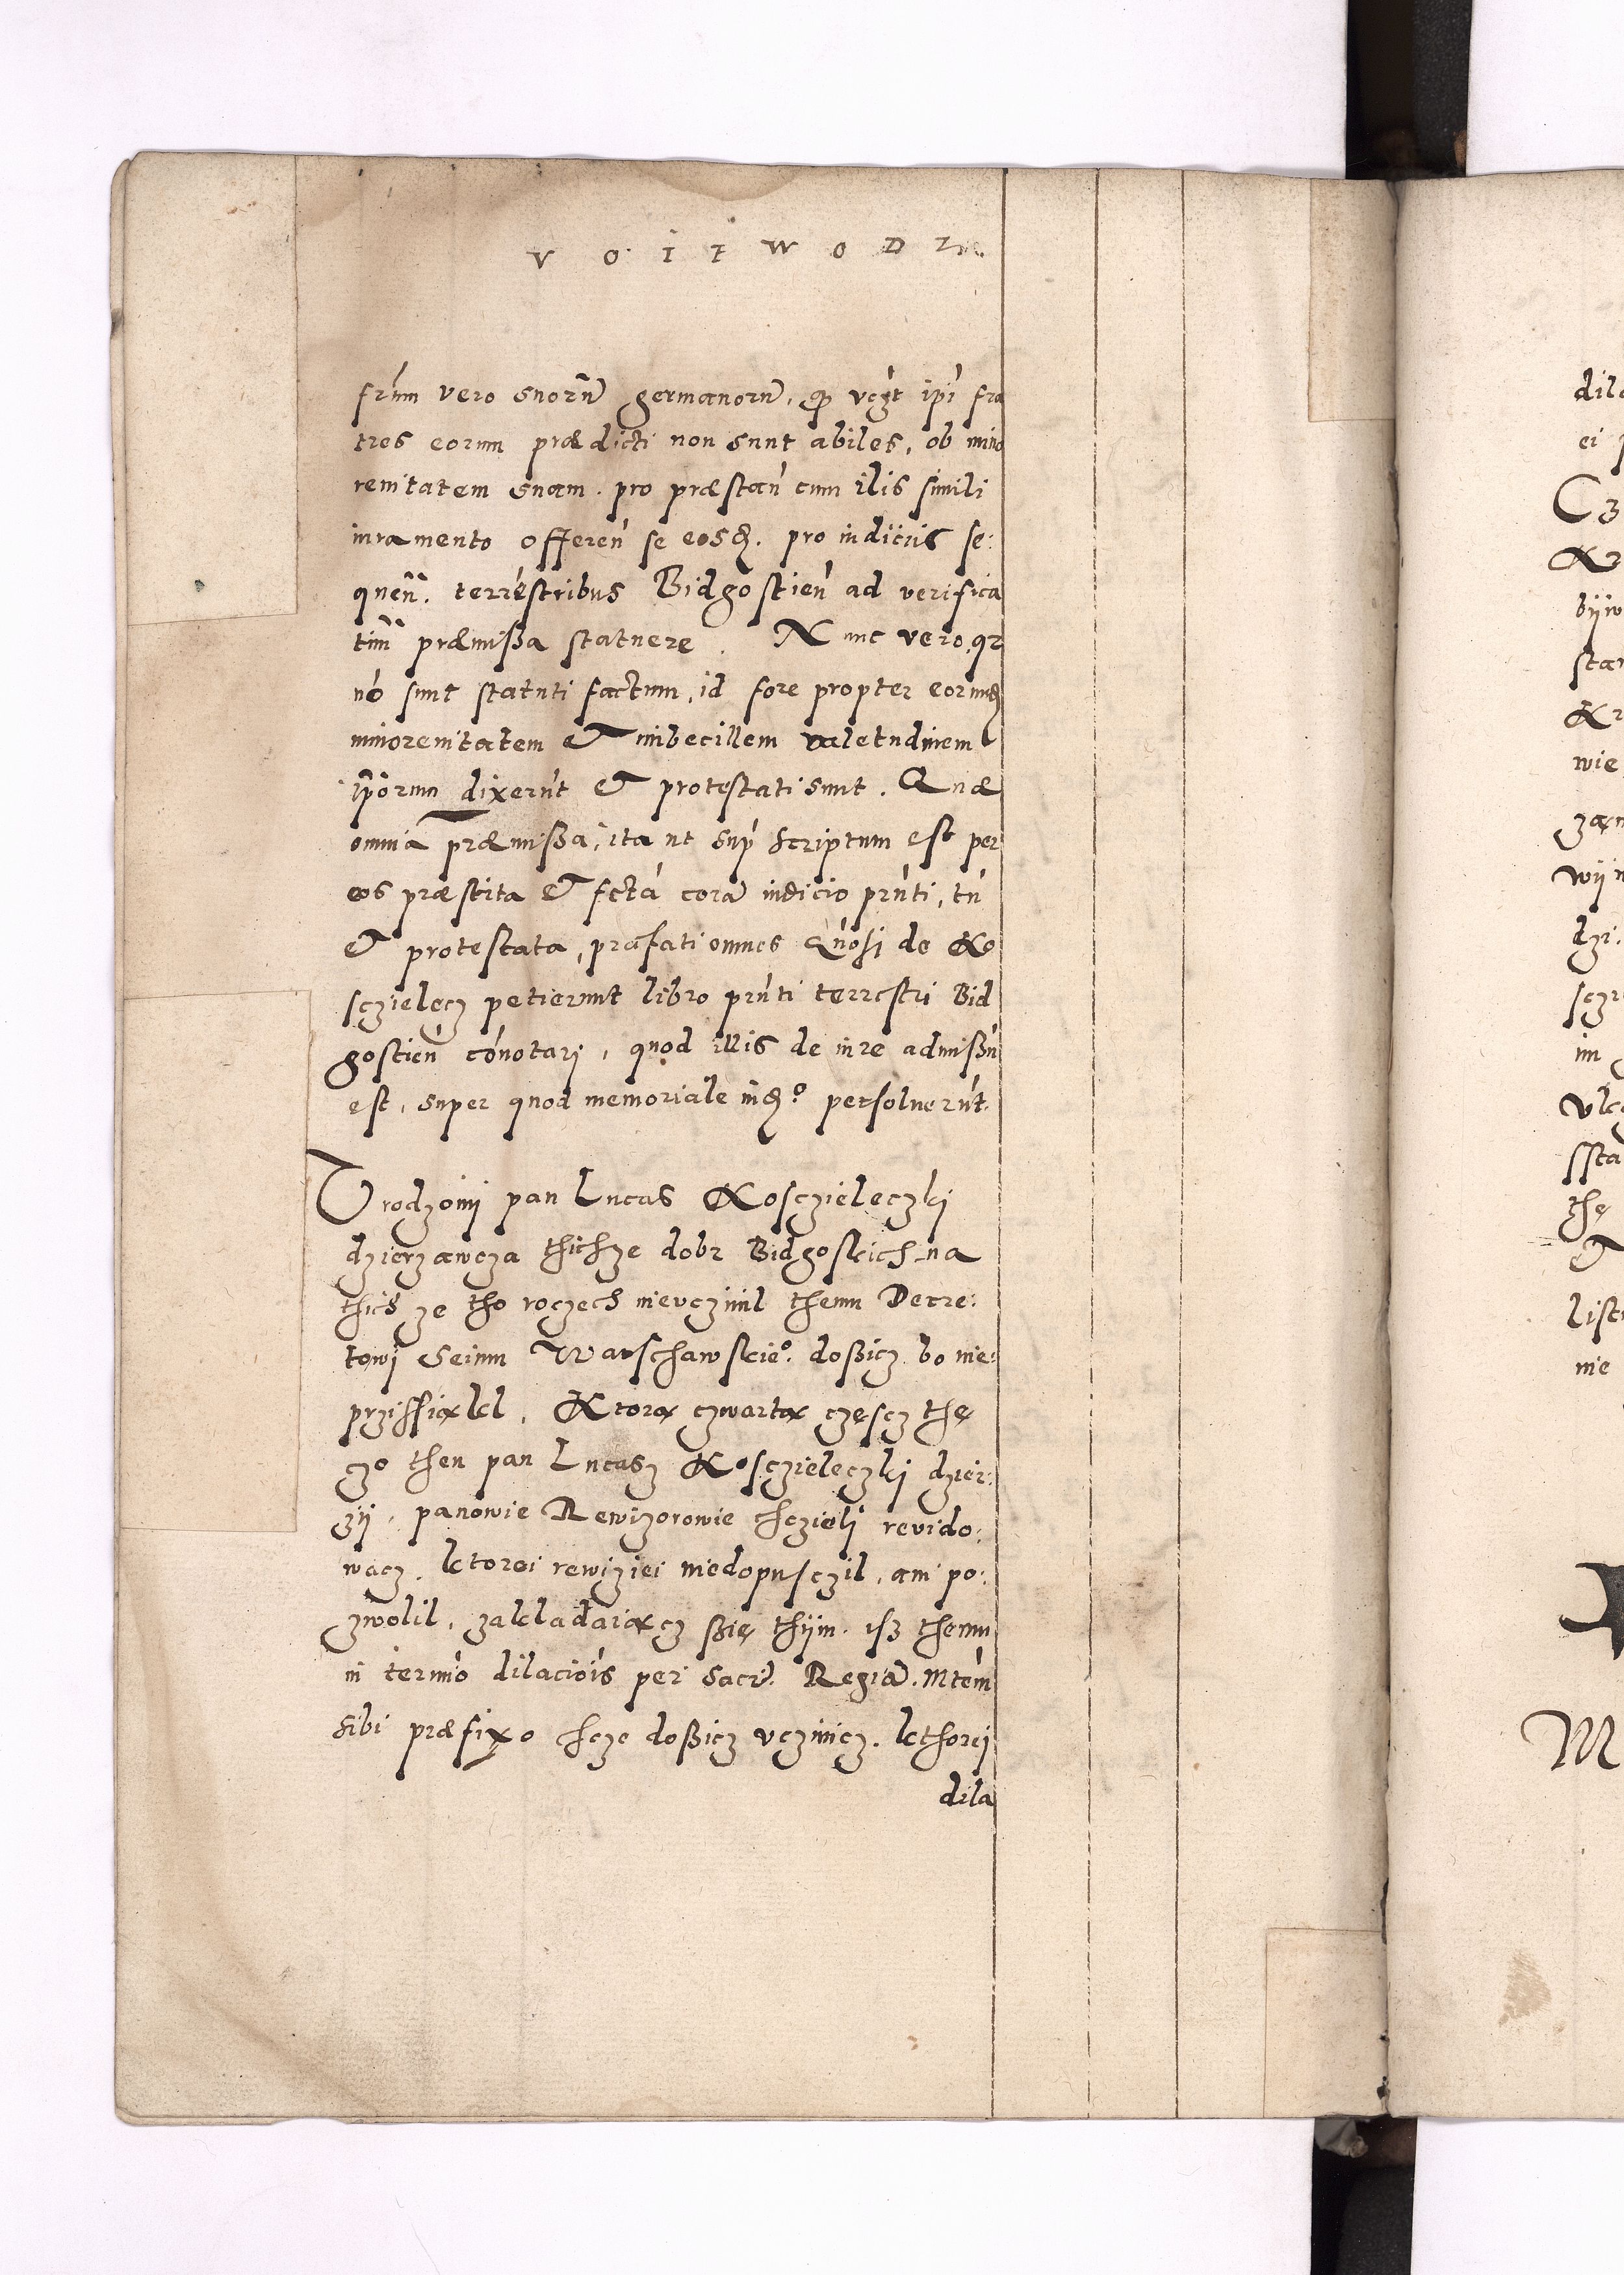 V O I E W O D Z
frúm vero suorũ germanorũ, qp vegt ipí fra
tres eorum prædicti non sunt abiles, ob mino
renitatem suam. pro præstań cum ilis simili
iuramento offereń se eosq. pro iudiciis se:
queñ. terrestribus Bidgostień ad verifica
tim̃ præmißa statuere. Nunc vero, qr
nó sunt statuti factum, id fore propter eorumq
minorenitatem et imbecillem valetudinem
ip̃orum dixerút et protestati sunt. Quæ
omnia præmißa, ita ut sup scriptum est per
eos præstita et fctá corã iudicio prńti, tń
et protestata, præfati omnes Gńosi de Ko
sczielecz petierunt libro prńti terrestri Bid
gostień cónotari, quod illis de iure admißń
est, super quod memoriale inq.º persoluerút.
Vrodzonij pan Lucas Kosczieleczkj
dzierzawcza thichze dobr Bidgoskich na
thich ze tho roczech nieuczinil themu Decre:
towj Seimu Warschawskieº. doßicz bo nie:
prziſſiąkl. Ktorą czwartą częscz the
go then pan Lucasz Kosczieleczkj dzier:
zij, panowie Rewizorowie chczielj revido:
wacz. ktorei rewiziei niedopusczil, ani po:
zwolil, zakladaiącz ßię thijm. isz themu
in termío dilaciois per sacrã. Regiã. Mtem
sibi præfixo chcze doßicz vczinicz. kthorej
dila
dila
ei
Cz
Kr
bijw
star
Kr
wie
zan
wij
dzi.
sczi
im
vle
ssta
thę
et
list
nie
M